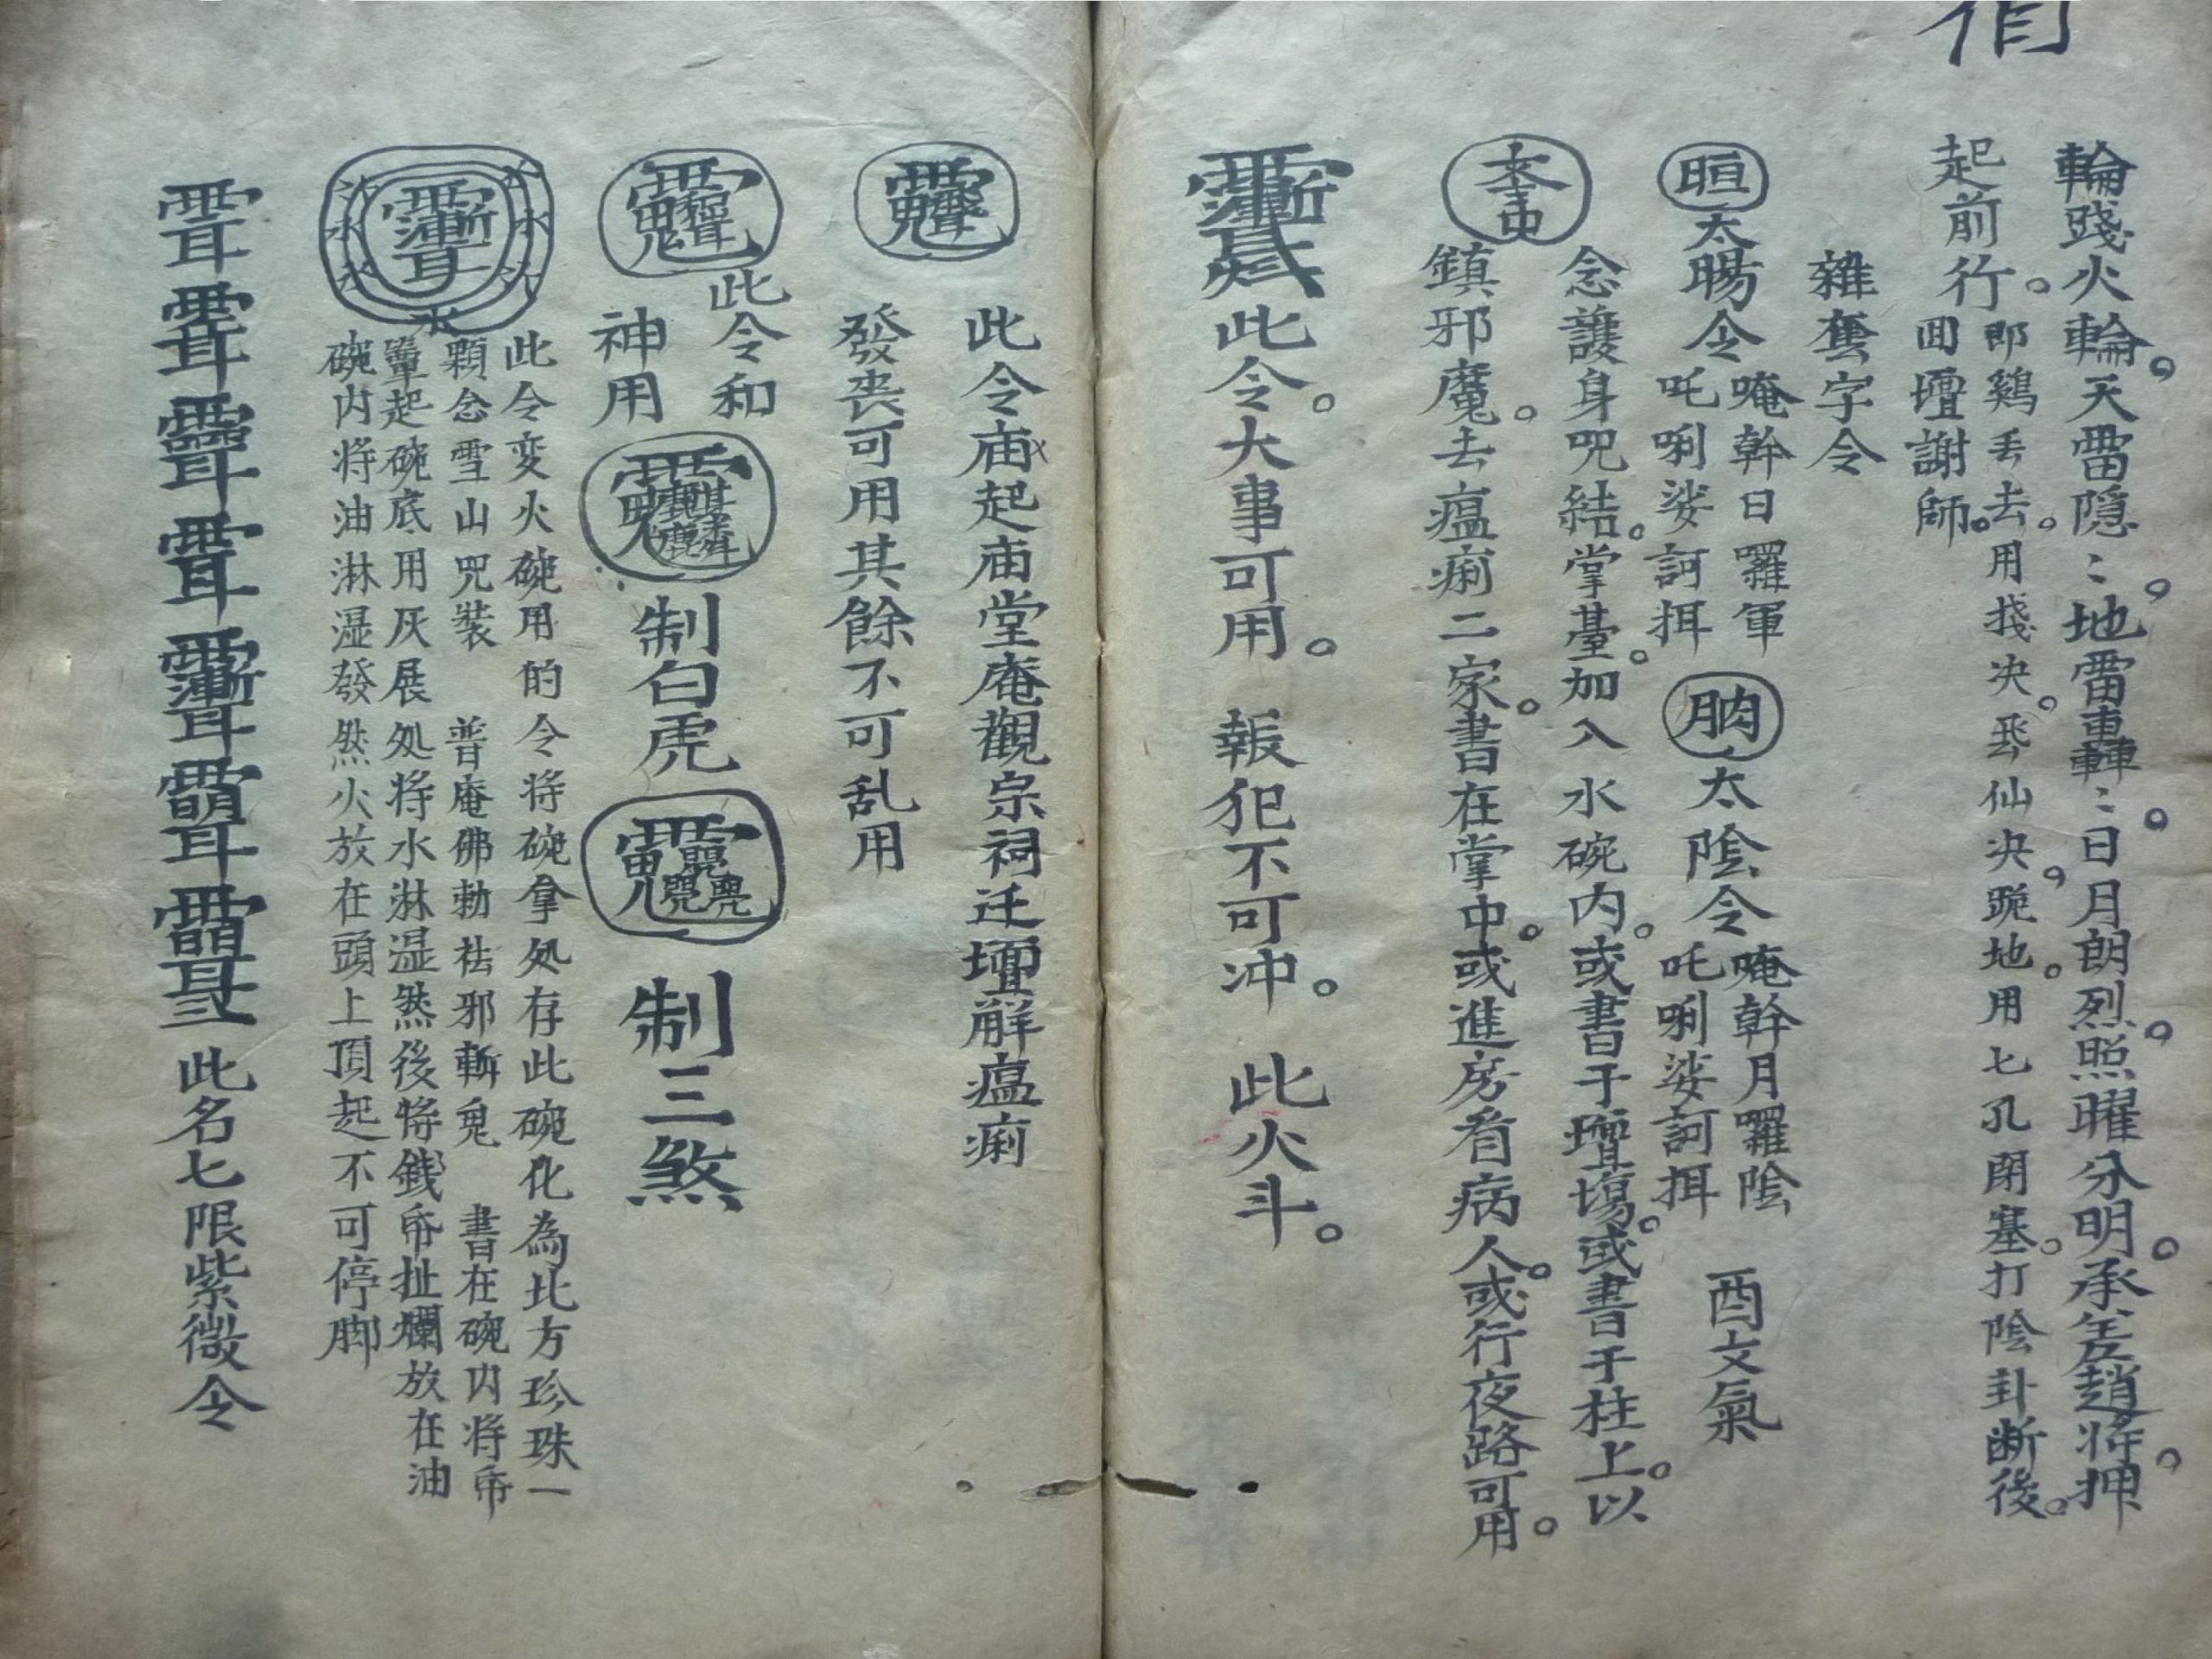 輪踐火輪。天雷隠〻。地雷轟轟〻。日月朗烈。照曜分明。承差趙將。押
起前行。
即鷄丢去。用找决。飛仙决。跪地。用七孔閉塞。打陰卦断後。
回壇謝師。
雜套字令
晅 太陽令
唵幹日囉軍
吒唎娑訶揖
太陰令
唵幹月囉陰
吒唎娑訶揖
酉文氣
念護身咒結。掌臺。加入水碗内。或書于壇塲。或書于柱上。以
鎮邪魔。去瘟痢二家。書在掌中。或進房看病人。或行夜路可用。
此令。大事可用。報犯不可冲。此火斗。
此令庙起庙堂庵觀宗祠迁壇解瘟痢
發喪可用其餘不可乱用
此令和
神用
制白虎
制三煞
此令变火碗用的令将碗拿処存此碗化為北方珍珠一
顆念雪山咒裝 普庵佛勅祛邪斬鬼 書在碗内将帋
輦起碗底用灰展処将水淋湿然後将錢帋扯爛放在油
碗内将油淋湿發然火放在頭上頂起不可停脚
此名七限紫微令